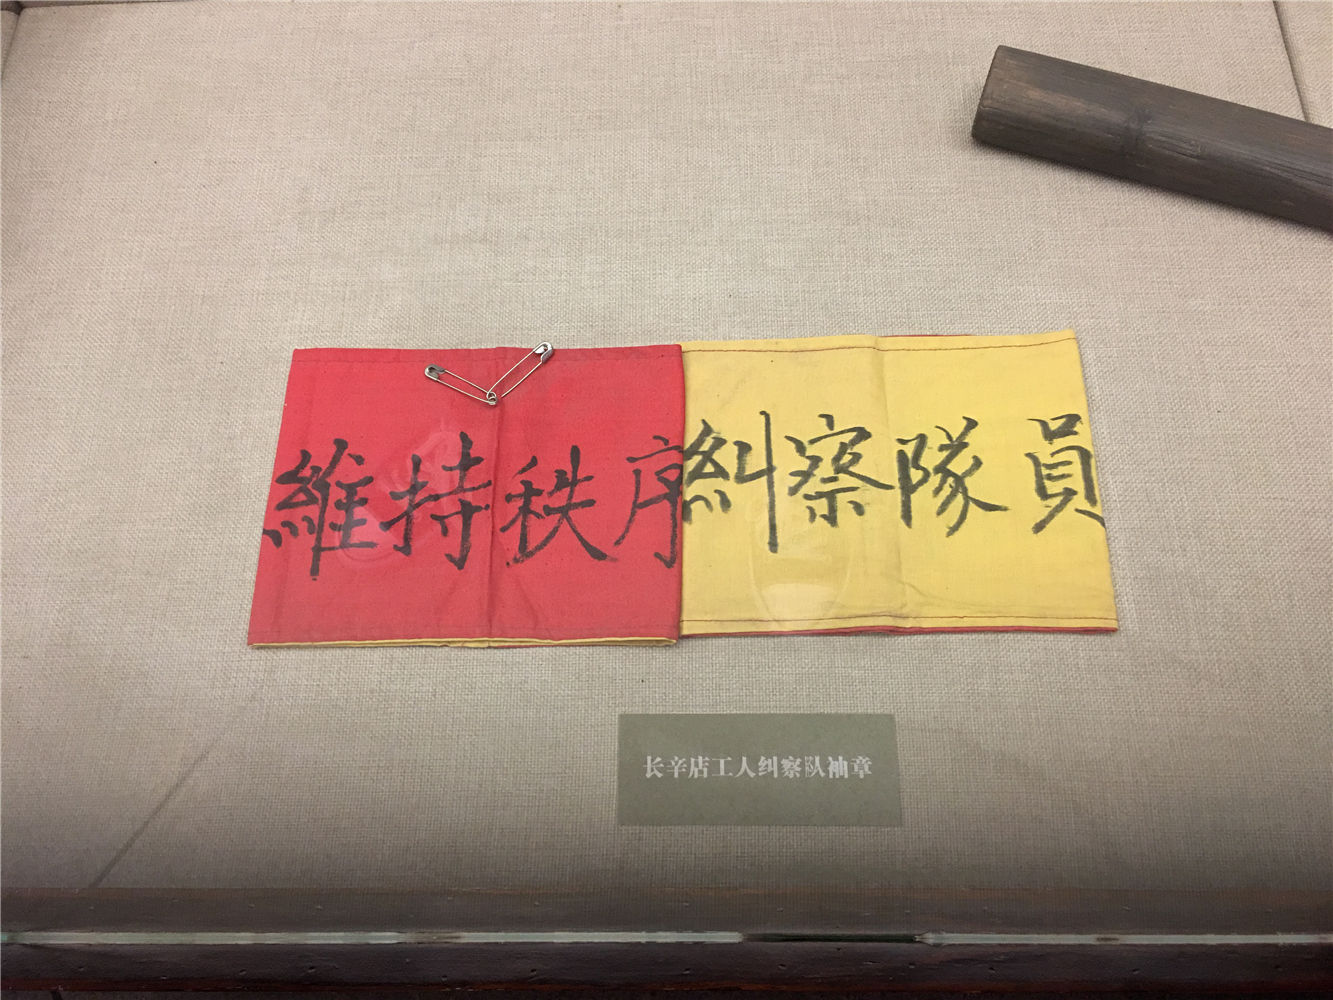 維持秩序
糾察隊員
长辛店工人纠察队袖章